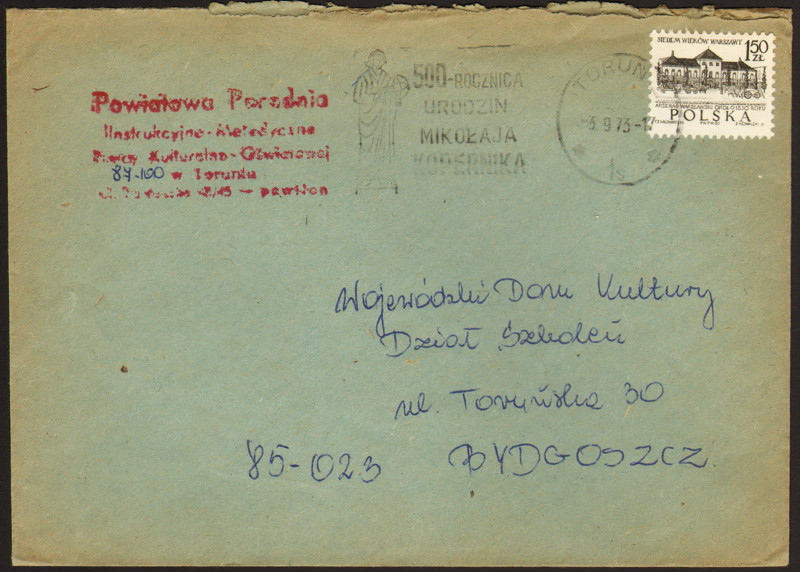 Powiatowa Poradnia
Instrukcyjno-Metodyczna
Pracy Kulturalno-Oświatowej
87-100 w Toruniu
pawilon
500-ROCZNICA
URODZIN
MIKOŁAJA
KOPERNIKA
TORUŃ
-3.9.73-1
1s
SIEDEM WIEKÓW WARSZAWY
1,50
ZŁ
ARSENAŁ WARSZAWSKI OKOŁO 1830 ROKU
POLSKA
Wojewódzki Dom Kultury
Dział Szkoleń
ul. Toruńska 30
85-023 BYDGOSZCZ